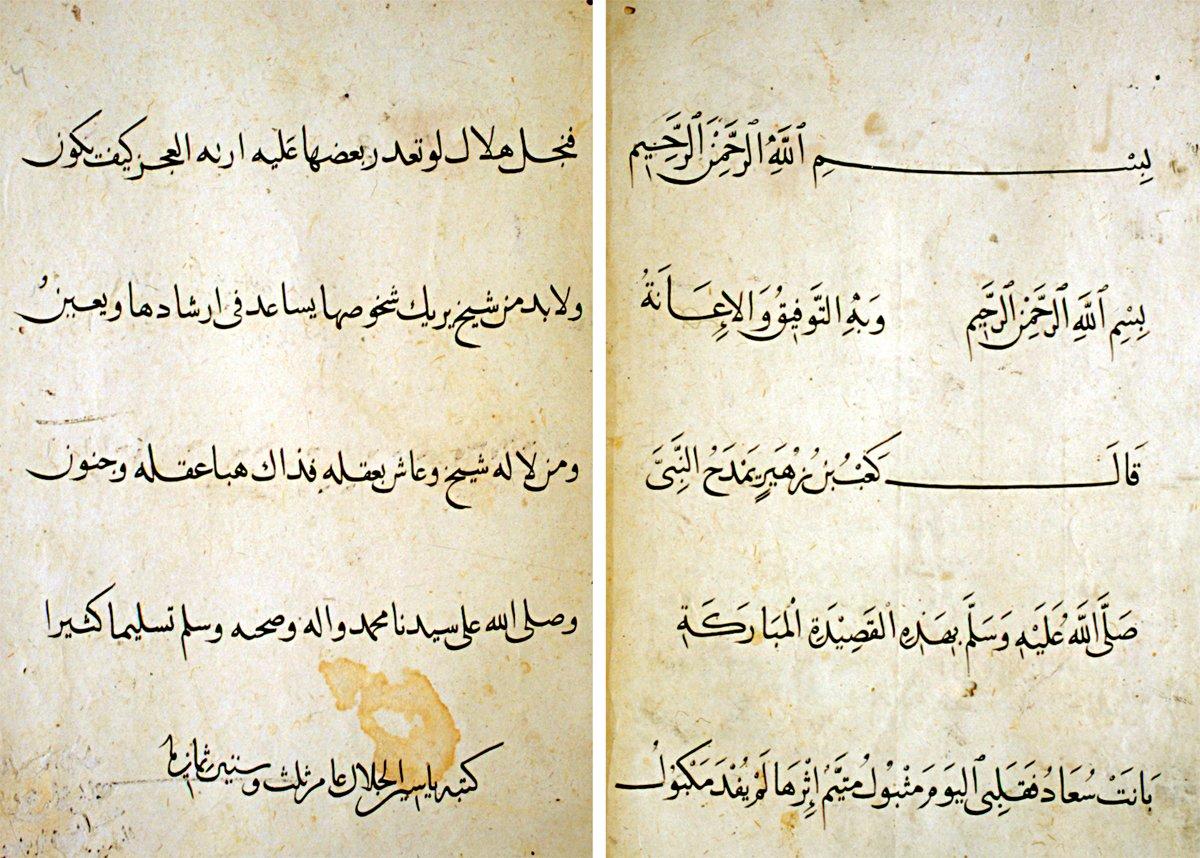 بِسْمِ ٱللَّهِ ٱلرَّحْمَٰنِ ٱلرَّحِيمِ
بِسْمِ ٱللَّهِ ٱلرَّحْمَٰنِ ٱلرَّحِيمِ وَبِهِ التَّوْفِيقُ وَالإِعَانَةُ
قَالَ كَعْبُ بْنُ زُهَيْرٍ يَمْدَحُ النَّبِيَّ
صَلَّى اللَّهُ عَلَيْهِ وَسَلَّمَ بِهَذِهِ الْقَصِيْدَةِ الْمُبَارَكَةِ
بَانَتْ سُعَادُ فَقَلْبِي ٱلْيَوْمَ مَتْبُولُ مُتَيَّمٌ إِثْرَهَا لَمْ يُفْدَ مَكْبُولُ
هلال لو تعدر بعضها عليه العجز كيف تكون
ولا بد من شيخ يريك شخوصها يساعد فى ارشادها ويعين
ومن لا له شيخ وعاش بعقله فذاك هبا عقله وجنون
وصلى الله على سيدنا محمد واله وصحبه وسلم تسليما كثيرا
كتبه ياسر الجلال عام ثلث وستين